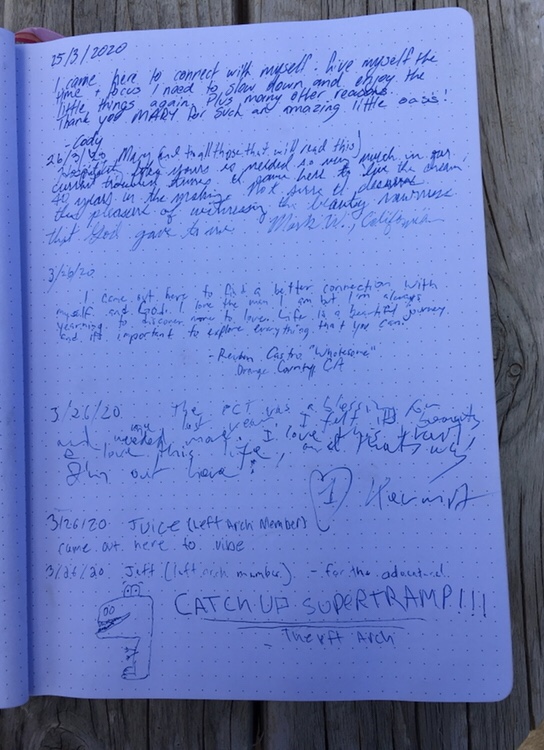 25/3/2020
I came here to connect with myself. Give myself the
time & focus I need to slow down and enjoy the
little things again. Plus many other reasons.
Thank you MARY for such an amazing little oasis!
- Cody
26/3/20 Mary (and to all those that will read this)
hospitality like yours is needed so very much in our
current troubled times. I came here to live the dream,
40 years in the making. Not sure I deserve
the pleasure of witnessing the beauty
that God gave to me. Mark W., California
3/26/20
I came out here to find a better connection with
myself and God. I love the man I am but I'm always
yearning to discover more to love. Life is a beautiful journey
and it's important to explore everything that you can.
- Reuben Castro "Wholesome"
Orange County CA
3/26/20 The PCT was a blessing for
me last year. I felt its beauty
and needed more. I love this trail,
I love this life, and that's why
I'm out here!
3/26/20 JUICE (Left Arch Member)
came out here to vibe
3/26/20 Jeff (left arch member) - for the
CATCH UP SUPERTRAMP!!!
- Arch